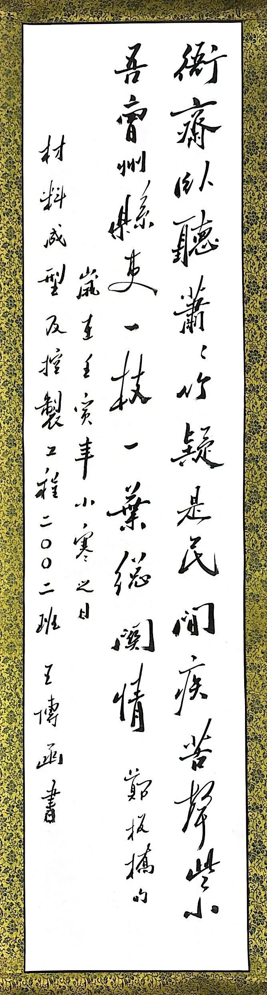 衙齋臥聽蕭〻竹疑是民間疾苦聲些小
吾曹州縣吏一枝一葉總關情 鄭板橋句
嵗在壬寅年小寒之日
材料成型及控製工程二〇〇二班 王博函書